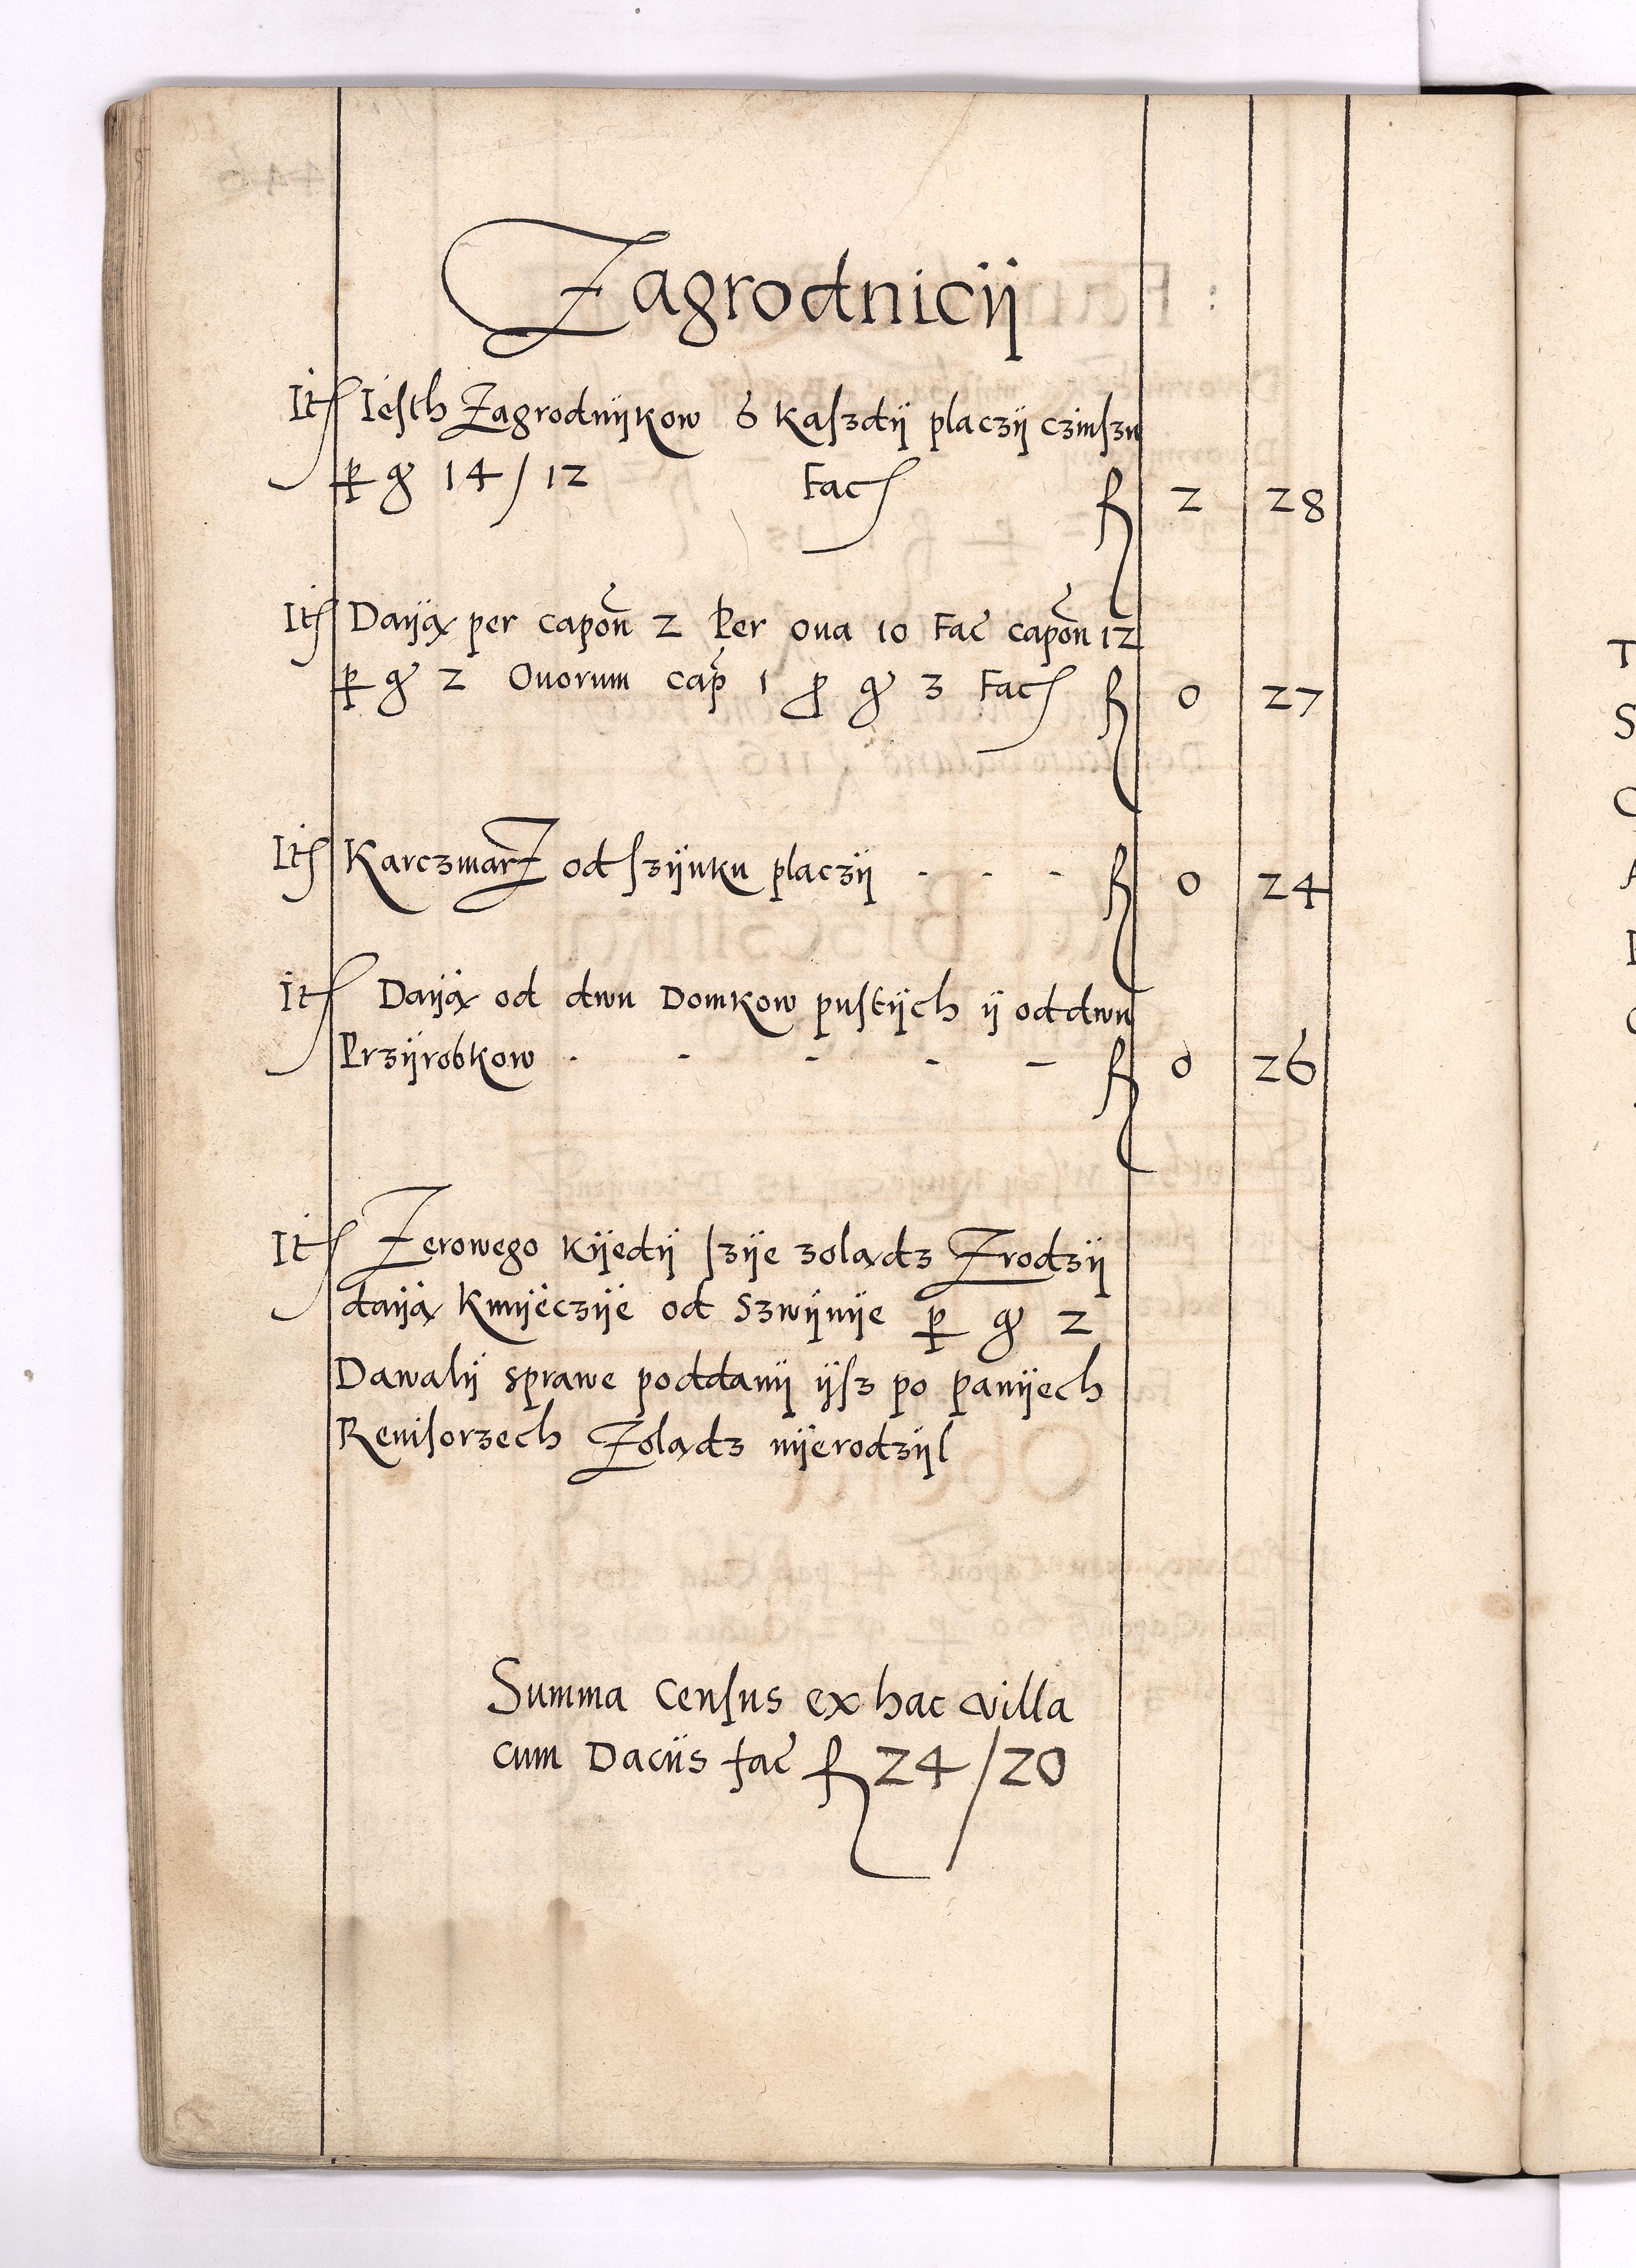 Zagrodnicÿ
It Iesth Zagrodnÿkow 6 kaſzdÿ placzÿ czinſzu
p gͬ 14/12 Fac f 2 28
It Daÿą per capon 2 Per oua 10 Fac capon 12
p gͬ 2 Ouorum cap 1 p gͬ 3 Fac f 0 27
It Karczmarz od ſzÿnku placzÿ - - - f 0 24
It Daÿą od dwu Domkow puſtÿch ÿ od dwu
Przÿrobkow - - - - - f 0 26
It Zerowego kÿedÿ ſzÿe zolądz Zrodzÿ
daÿą kmÿeczÿe od Szwÿnÿe p gͬ 2
Dawalÿ sprawe poddanÿ ÿſz po panÿech
Reuiſorzech Zolądz nÿerodzÿl
Summa Cenſus ex hac villa
cum Daciis fac f 24/20